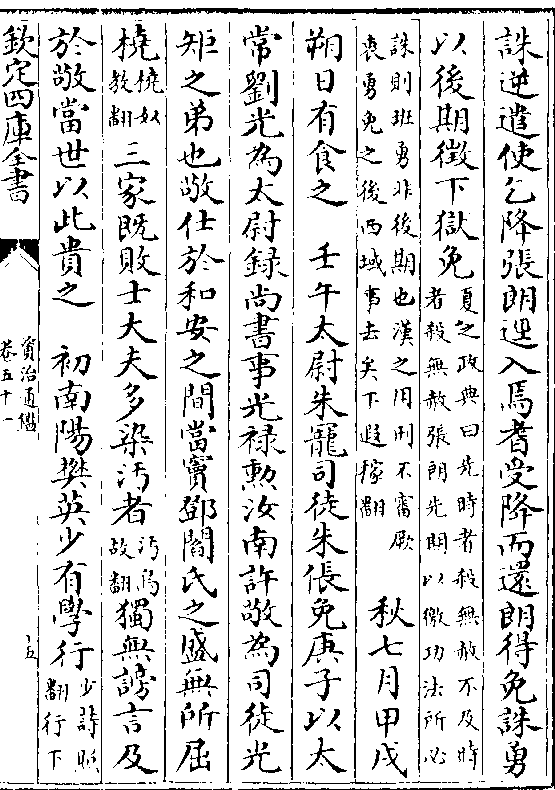 誅遂遣使乞降張朗逕入焉耆受降而還朗得免誅勇
以後期徵下獄免夏之政典曰先時者殺無赦不及時
者殺無赦張朗先期以徼功法所必
誅則班勇非後期也漢之用刑不審厥
衷勇免之後西域事去矣下遐稼翻
秋七月甲戌
朔日有食之 壬午太尉朱寵司徒朱倀免庚子以太
常劉光為太尉録尚書事光禄勲汝南許敬為司徒光
矩之弟也敬仕於和安之間當竇鄧閻氏之盛無所屈
橈橈奴
教翻三家既敗士大夫多染汚者汚烏
故翻獨無謗言及
於敬當世以此貴之 初南陽樊英少有學行少詩照
翻行下
欽定四庫全書
資治通鑑
卷五十一
五